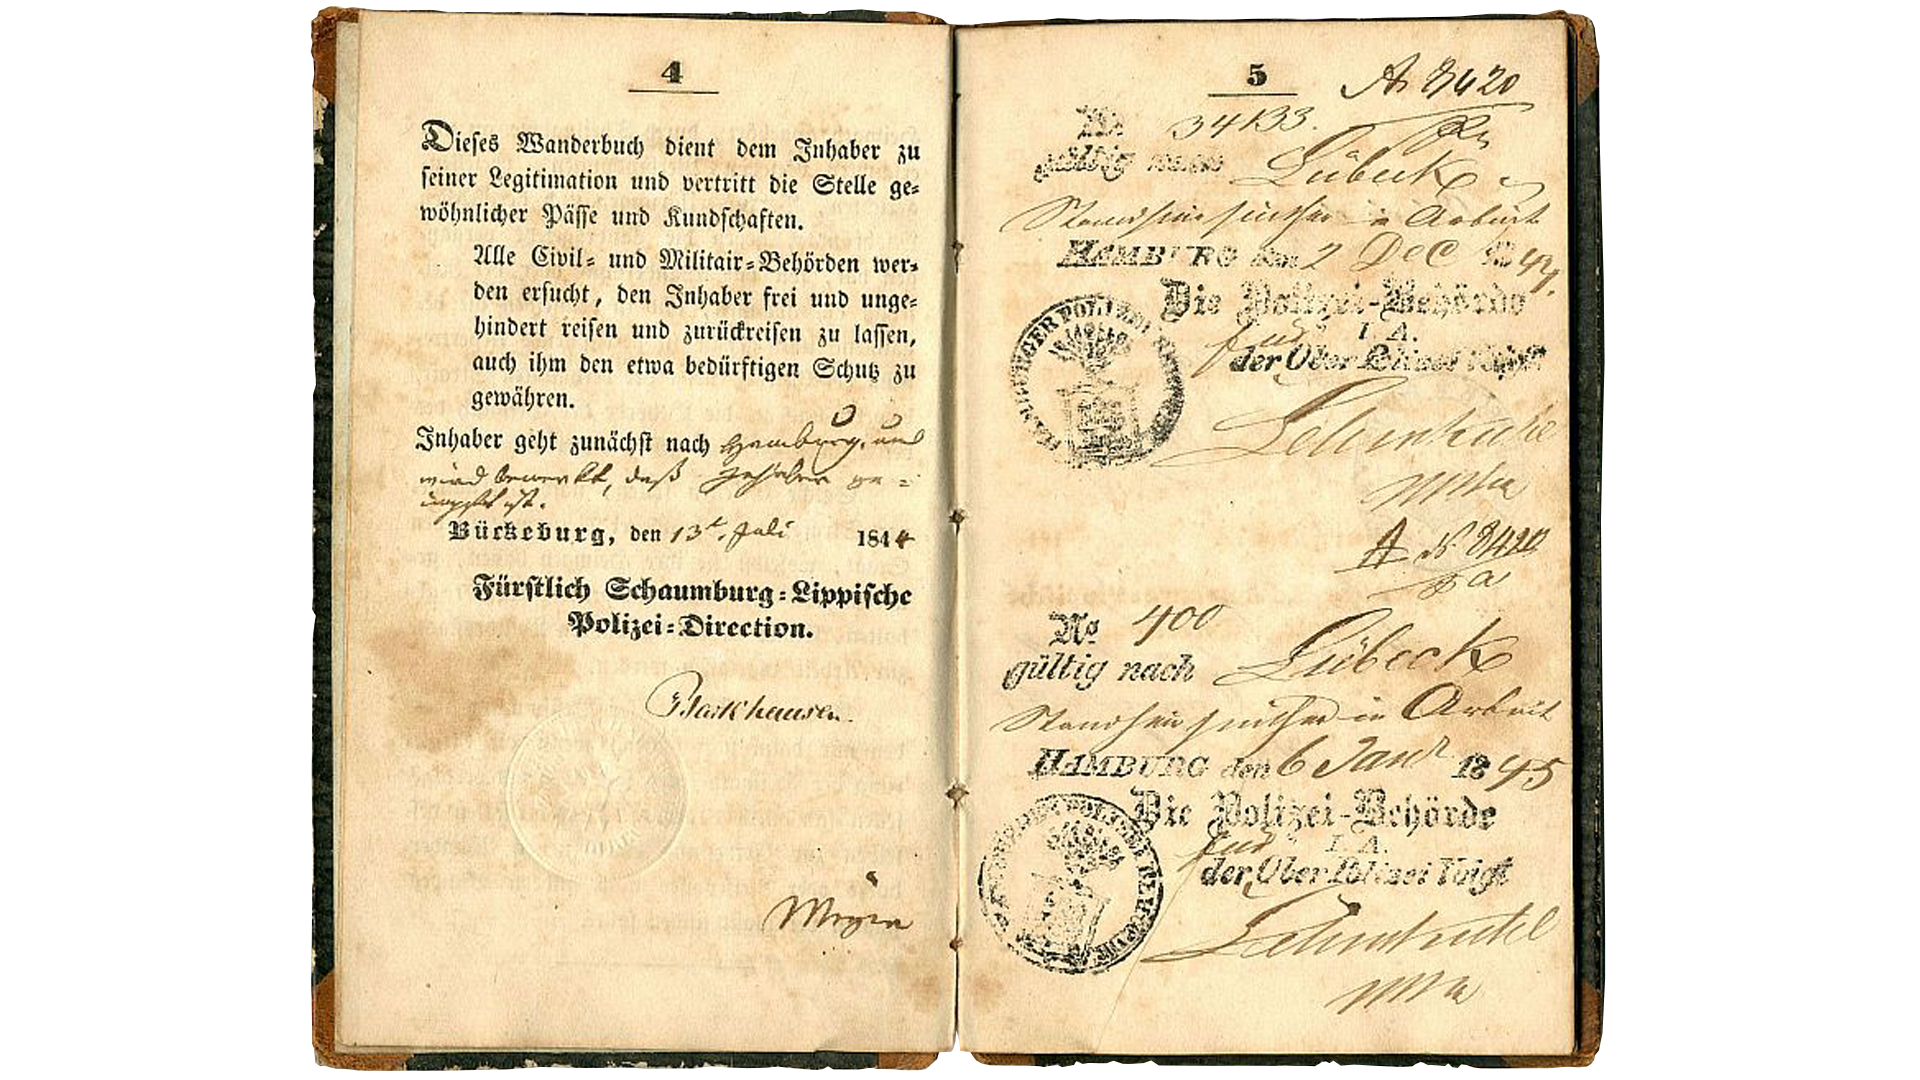 4
Dieses Wanderbuch dient dem Inhaber zu
seiner Legitimation und vertritt die Stelle ge=
wöhnlicher Pässe und Kundschaften.
Alle Civil= und Militair=Behörden wer=
den ersucht, den Inhaber frei und unge=
hindert reisen und zurückreisen zu lassen,
auch ihm den etwa bedürftigen Schutz zu
gewähren.
Inhaber geht zunächst nach Hamburg, und
wird bemerkt, daß Inhaber ge=
impft ist.
Bückeburg, den 13t. Juli 1844
Fürstlich Schaumburg=Lippische
Polizei=Direction.
Barkhausen.
5
A. 8420
No. 34133.
gültig nach Lübeck
in Arbeit
HAMBURG den 2 Dec 1844.
Die Polizei-Behörde
I. A.
der Ober Polizei Voigt
HAMBURGER POLIZEI BEHOERDE
A 8420
No 400
gültig nach Lübeck
in Arbeit
HAMBURG den 6 Janr 1845
Die Polizei-Behörde
I. A.
der Ober Polizei Voigt
HAMBURGER POLIZEI BEHOERDE